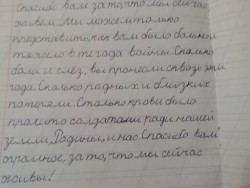 Спасибо вам за то, что мы сейчас
живём. Мы можем только
представить, как вам было больно и
тяжело в те года войны. Сколько
боли и слёз, вы пронесли сквозь эти
года. Сколько родных и близких
потеряли. Столько крови было
пролито солдатами ради нашей
земли, Родины, и нас. Спасибо вам
огромное, за то, что мы сейчас
живы!